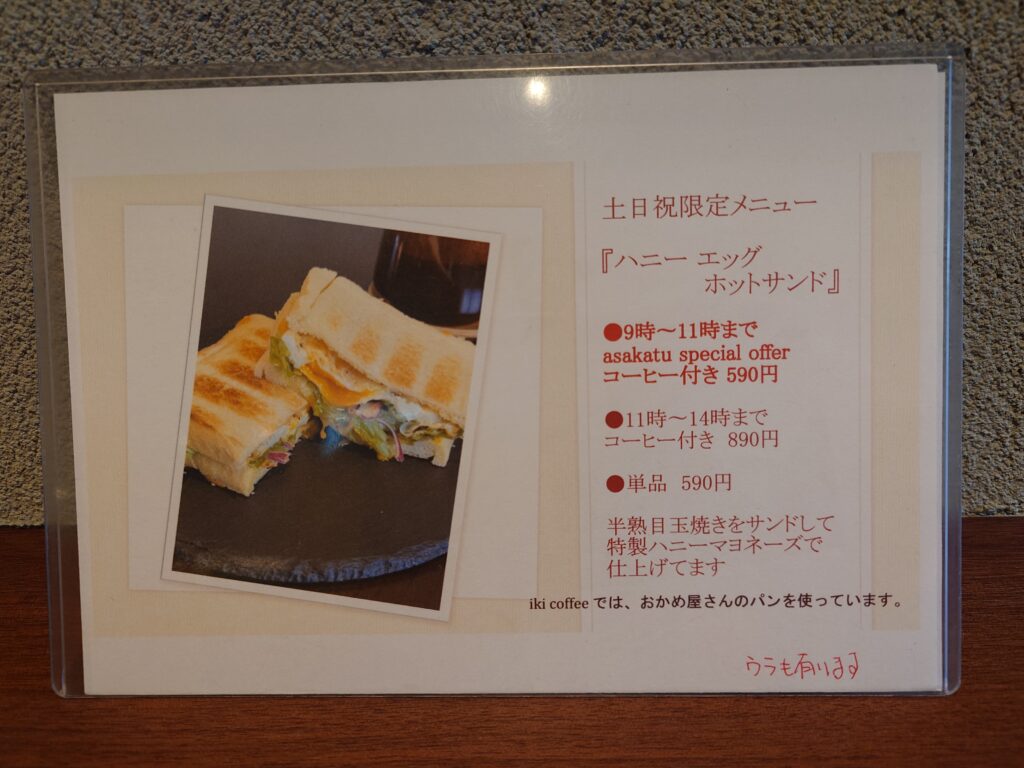 土日祝限定メニュー
『ハニー エッグ
ホットサンド』
●9時～11時まで
asakatu special offer
コーヒー付き 590円
●11時～14時まで
コーヒー付き 890円
●単品 590円
半熟目玉焼きをサンドして
特製ハニーマヨネーズで
仕上げてます
iki coffee では、おかめ屋さんのパンを使っています。
ウラも有ります